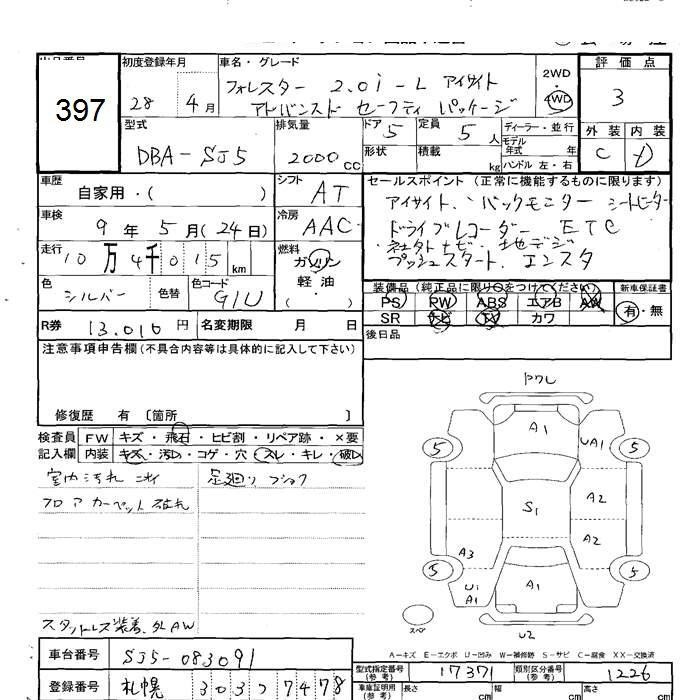 初度登録年月
車名・グレード
評価点
397
28 年 4 月
フォレスター 2.0i-L アイサイト
アドバンスド セーフティ パッケージ
2WD
・
4WD
3
型式
排気量
ドア
定員
ディーラー・並行
外装
内装
DBA-SJ5
2000 cc
5
5 人
モデル年式 年
C
D
形状
積載
kg
ハンドル 左・右
車歴
自家用・( )
シフト
AT
セールスポイント(正常に機能するものに限ります)
アイサイト、バックモニター シートヒーター
ドライブレコーダー ETC
社外ナビ・地デジ
プッシュスタート、エンスタ
車検
9 年 5 月(24日)
冷房
AAC
走行
10 万 4 千 0 1 5 km
燃料
ガソリン
軽油
( )
色
シルバー
色替
色コード
G1U
装備品(純正品に限り○をつけてください)
新車保証書
PS
PW
ABS
エアB
AW
有・無
SR
ナビ
TV
カワ
R券
13,010 円
名変期限
月
日
後日品
注意事項申告欄(不具合内容等は具体的に記入して下さい)
修復歴 有 〔箇所 〕
検査員
記入欄
FW
キズ・飛石・ヒビ割・リペア跡・×要
内装
キズ・汚れ・コゲ・穴・スレ・キレ・破れ
室内汚れ ニオイ
足廻り ブヨウ
フロアカーペット破れ
スタットレス装着、外AW
トワレ
A1
5
UA1
5
A2
S1
A2
A3
5
5
U1
A1
A1
スペア
U2
A-キズ E-エクボ U-凹み W-補修跡 S-サビ C-腐食 XX-交換済
車台番号
SJ5-083091
型式指定番号
(参考)
17371
類別区分番号
(参考)
1226
登録番号
札幌 303 ツ 7478
車庫証明用
(参考)
長さ
cm
幅
cm
高さ
cm